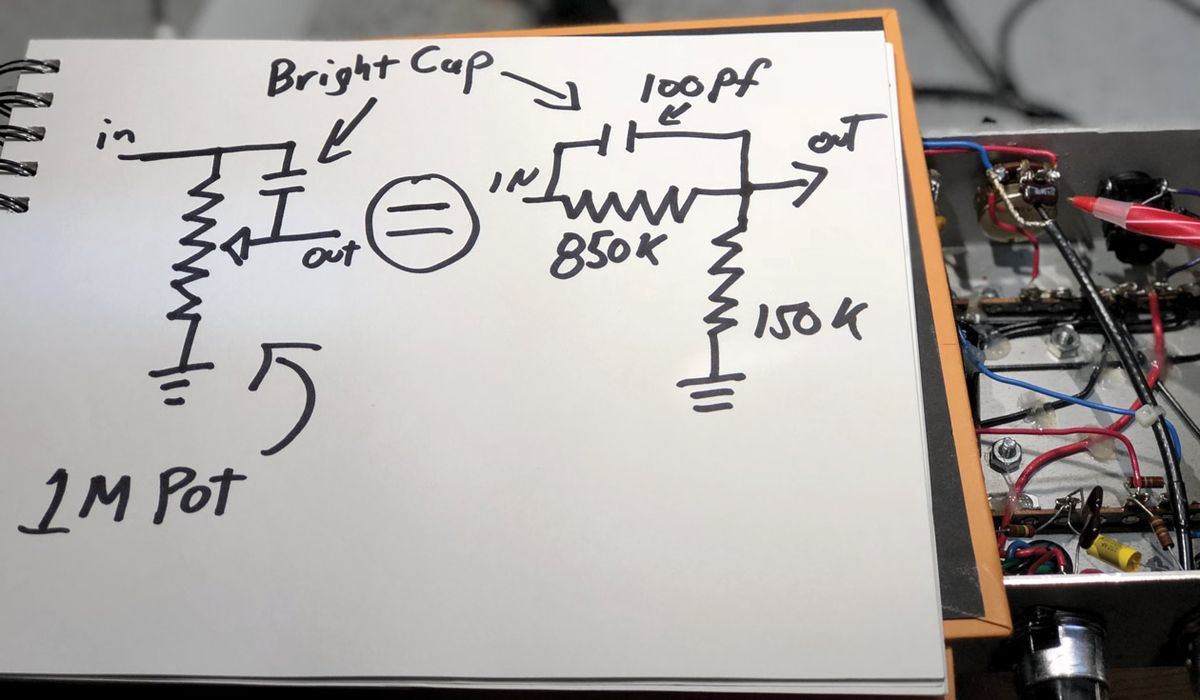 Bright Cap
100pf
in
out
IN
out
850K
150K
1M Pot